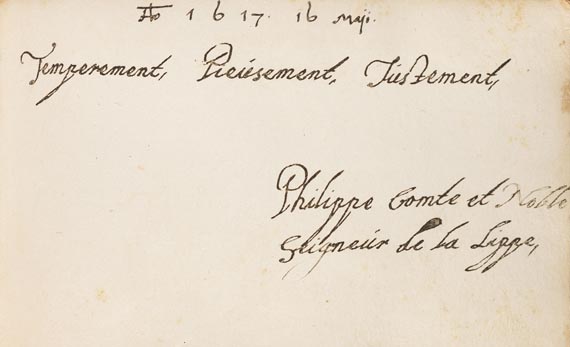 Ao 1617. 16 Maji.
Temperement, Pieusement, Justement,
Philippe Comte et Noble
Seigneur de la Lippe,